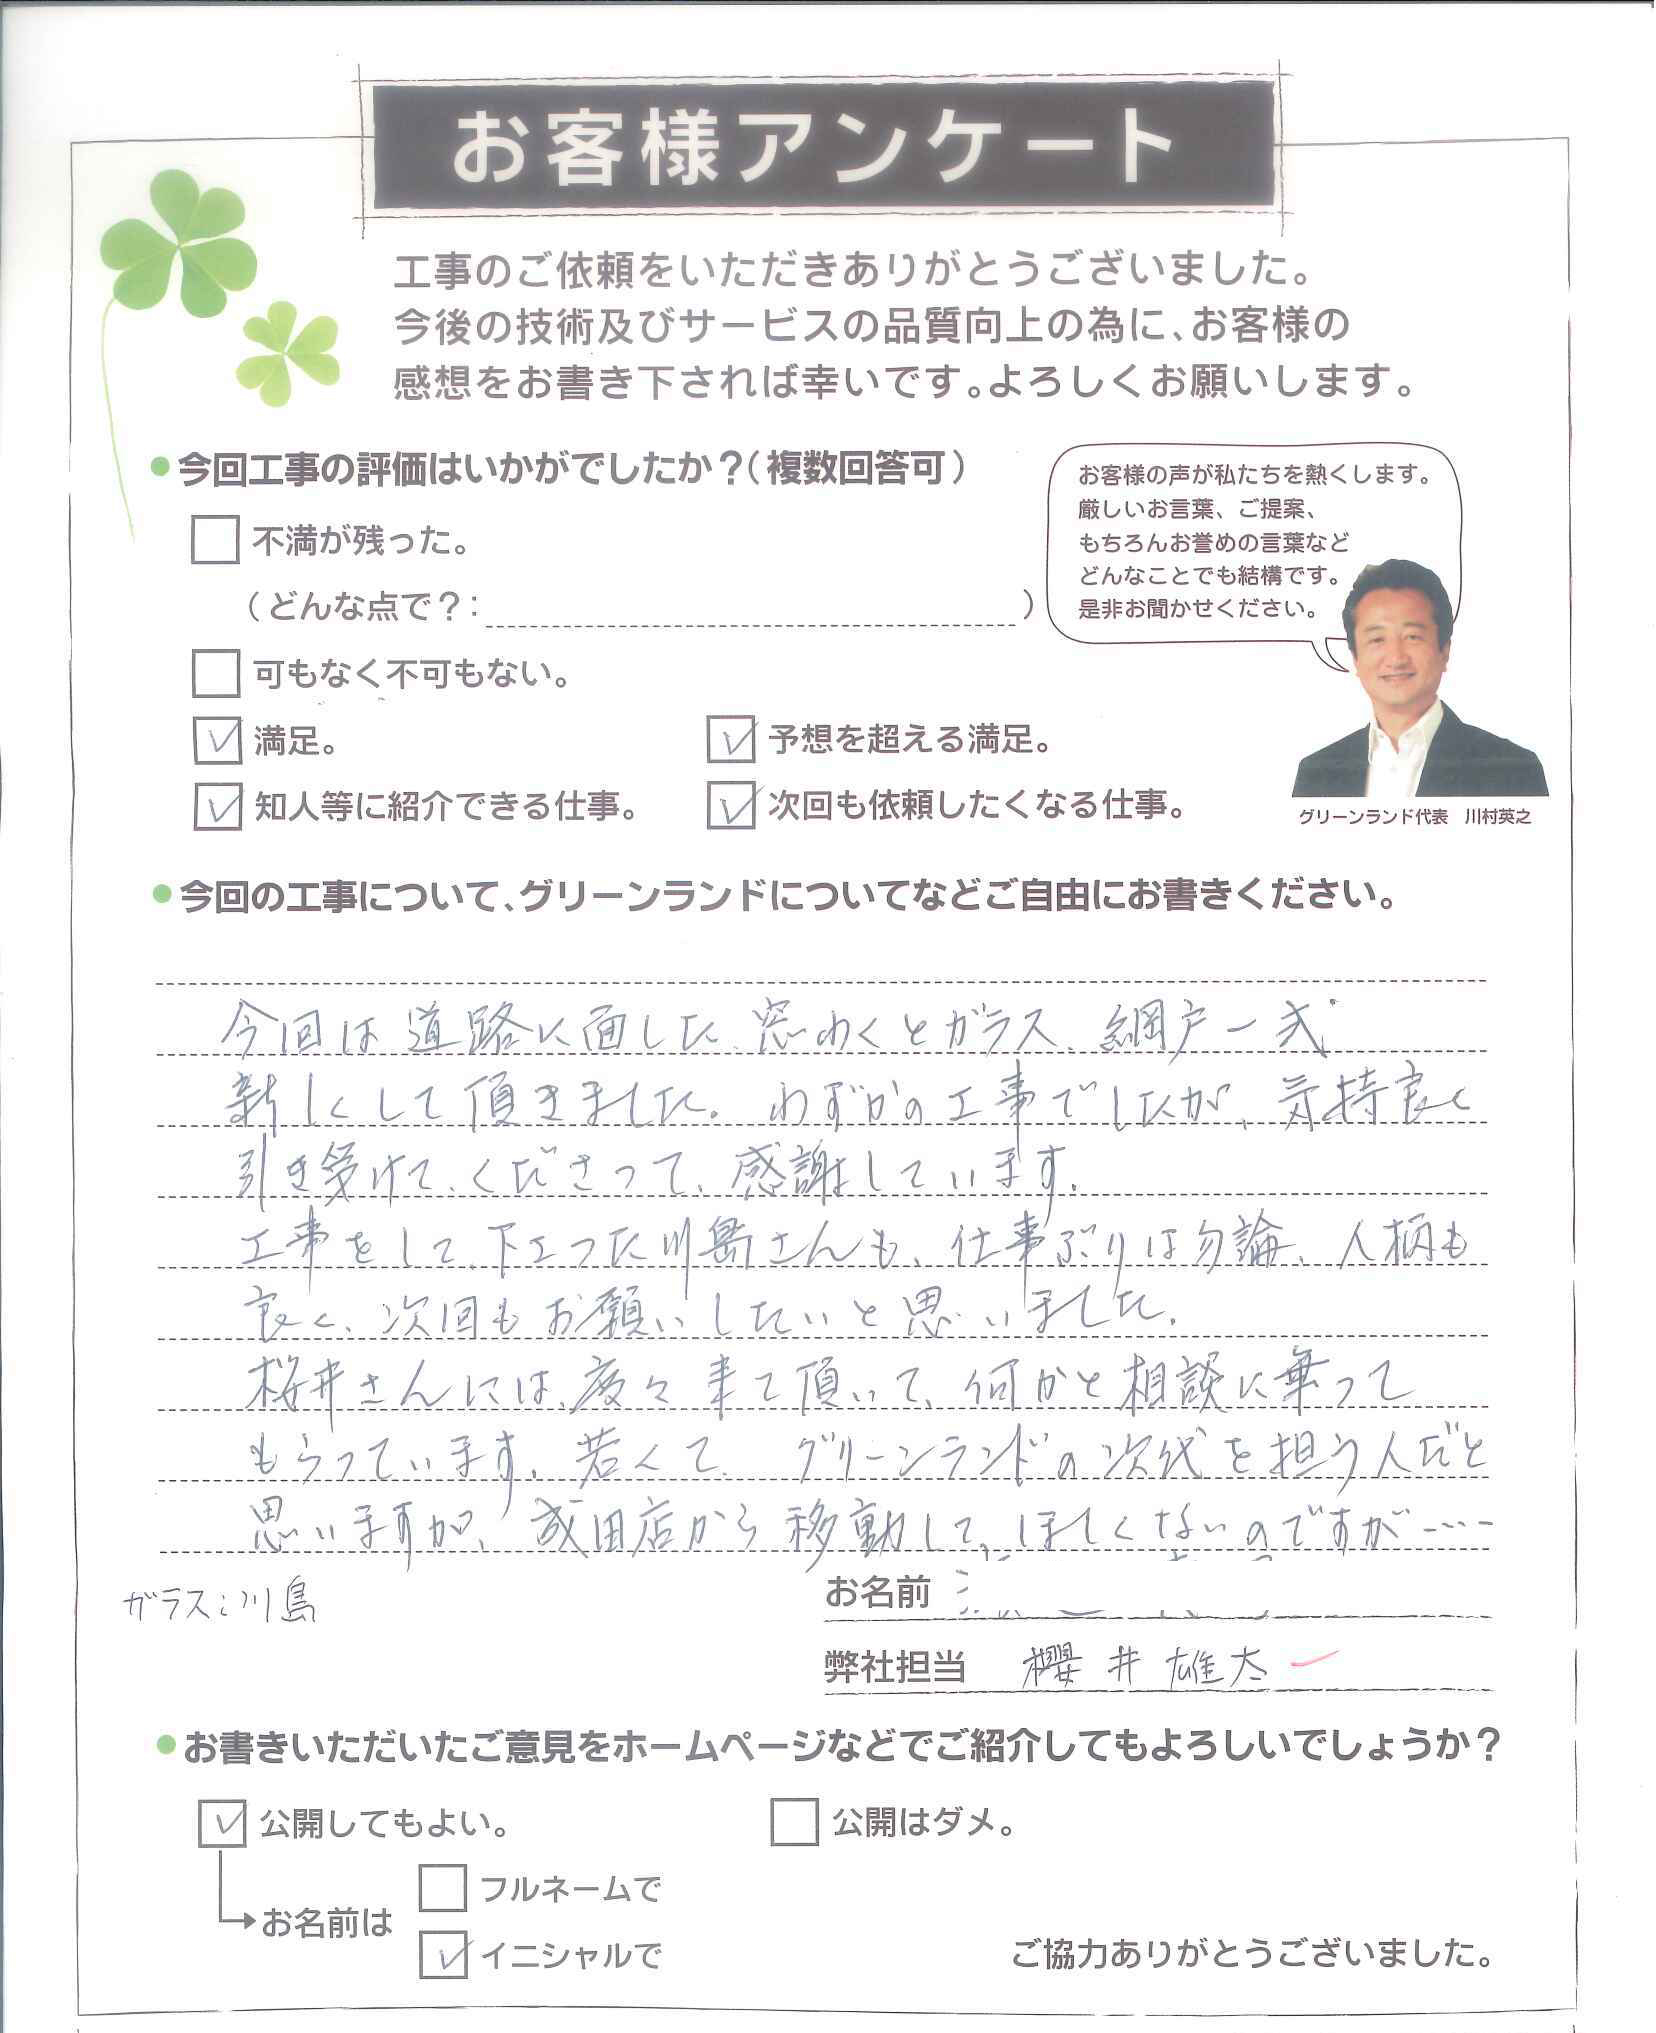 お客様アンケート
工事のご依頼をいただきありがとうございました。
今後の技術及びサービスの品質向上の為に、お客様の
感想をお書き下されば幸いです。よろしくお願いします。
今回工事の評価はいかがでしたか？（複数回答可）
不満が残った。
（どんな点で？：　）
可もなく不可もない。
満足。
予想を超える満足。
知人等に紹介できる仕事。
次回も依頼したくなる仕事。
お客様の声が私たちを熱くします。
厳しいお言葉、ご提案、
もちろんお誉めの言葉など
どんなことでも結構です。
是非お聞かせください。
グリーンランド代表　川村英之
今回の工事について、グリーンランドについてなどご自由にお書きください。
今回は道路に面した、窓わくとガラス、網戸一式
新しくして頂きました。わずかの工事でしたが、気持良く
引き受けて、くださって、感謝しています。
工事をして、下さった川島さんも、仕事ぶりは勿論、人柄も
良く、次回もお願いしたいと思いました。
桜井さんには、度々来て頂いて、何かと相談に乗って
もらっています。若くて、グリーンランドの次代を担う人だと
思いますが、成田店から移動して、ほしくないのですが……
ガラス：川島
お名前
弊社担当　櫻井雄太
お書きいただいたご意見をホームページなどでご紹介してもよろしいでしょうか？
公開してもよい。
公開はダメ。
お名前は
フルネームで
イニシャルで
ご協力ありがとうございました。